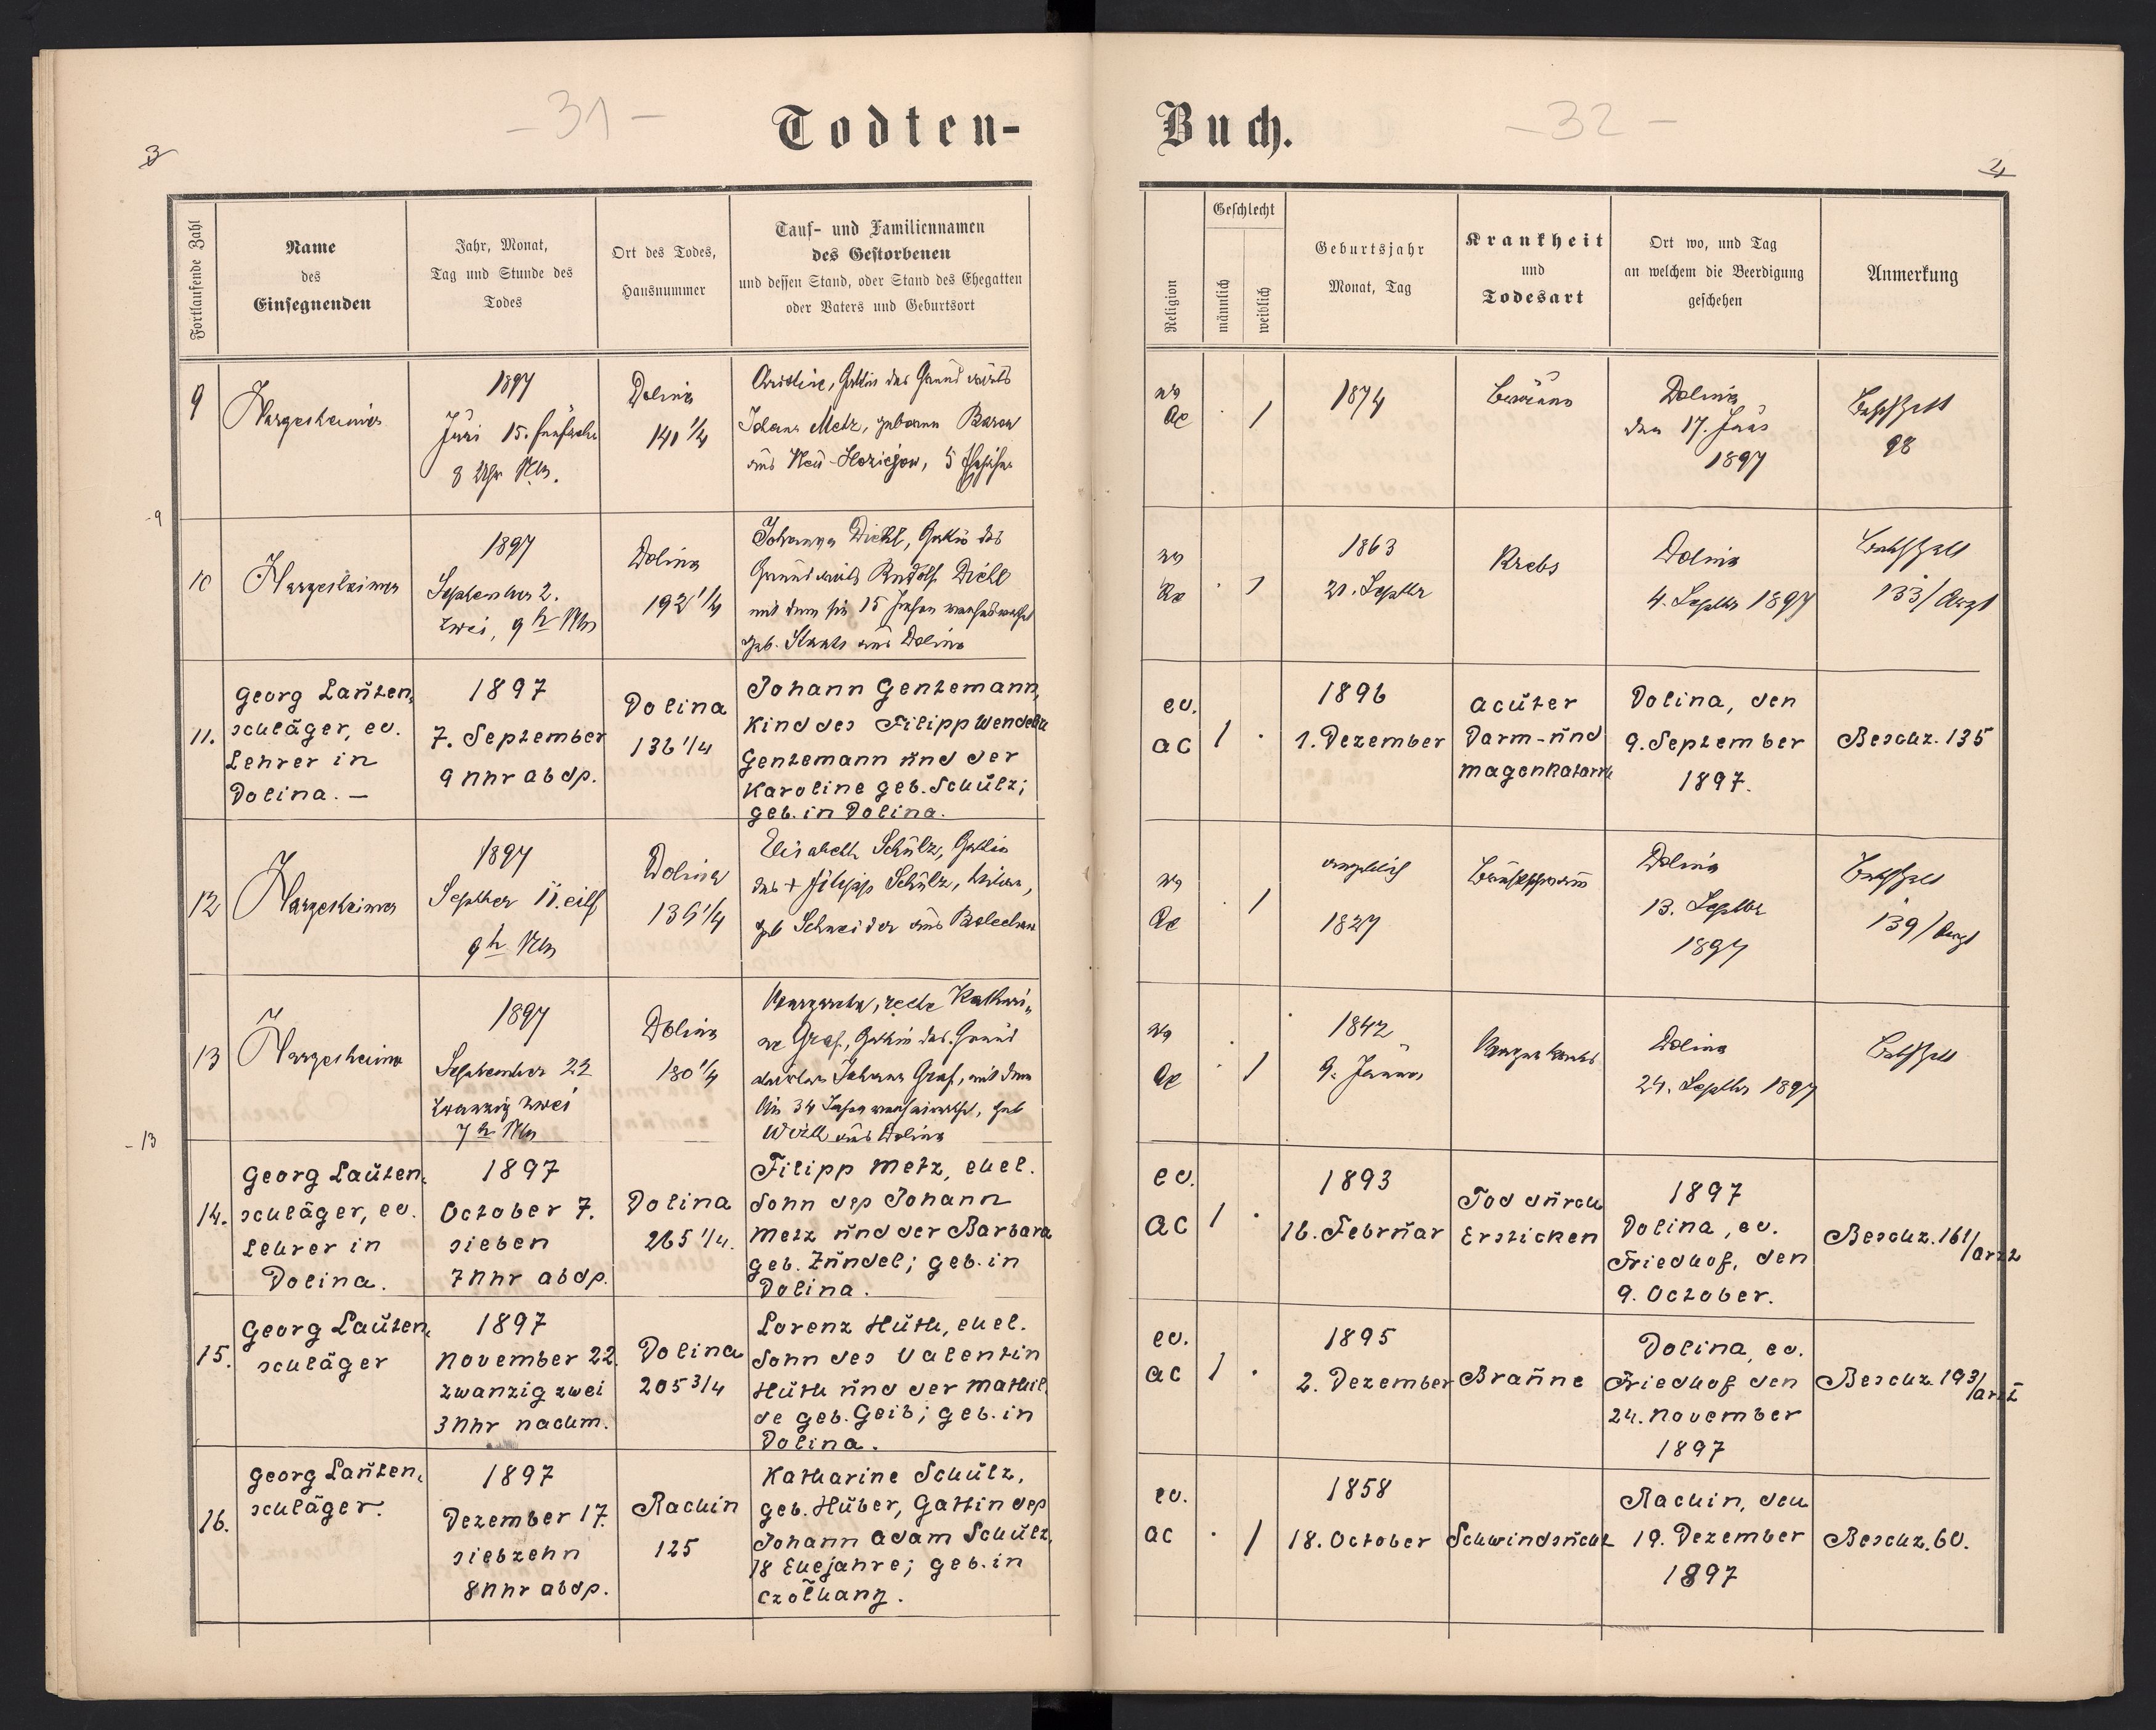 - 31 -
Todten-
3
Fortlaufende Zahl
Name
des
Einsegnenden
Jahr, Monat,
Tag und Stunde des
Todes
Ort des Todes,
Hausnummer
Tauf- und Familiennamen
des Gestorbenen
und dessen Stand, oder Stand des Ehegatten
oder Vaters und Geburtsort
9
Hargesheimer
1897
15.
8 Uhr
Dolina
141 1/4
Christine, Gattin des Grundwirts
Johann Metz, geborene
aus Neu-
9
10
Hargesheimer
1897
September 2.
zwei, 9 h
Dolina
192 1/4
Johanna Diehl, Gattin des
Grundwirts Rudolf Diehl
mit dem sie 15 Jahre
geb. aus Dolina
11.
Georg Lauten-
schläger, ev.
Lehrer in
Dolina. —
1897
7. September
9 Uhr abds.
Dolina
136 1/4
Johann Gentemann,
Kind des Filipp Wendelin
Gentemann und der
Karoline geb. Schulz;
geb. in Dolina.
12
Hargesheimer
1897
Septber 11. eilf
9 h
Dolina
1/4
Elisabeth Schulz, Gattin
des + Filipp Schulz,
geb Schneider aus Bolechow
13
Hargesheimer
1897
September 22
zwanzig zwei
7 h
Dolina
180 1/4
Margaretha, recte Kathari-
ne Graf, Gattin des Grund
Johann Graf, mit dem
sie 34 Jahre, geb
aus Dolina
- 13
14.
Georg Lauten-
schläger, ev.
Lehrer in
Dolina.
1897
October 7.
sieben
7 Uhr abds.
Dolina
265 1/4.
Filipp Metz, ehel.
Sohn des Johann
Metz und der Barbara
geb. Zundel; geb. in
Dolina.
15.
Georg Lauten-
schläger
1897
November 22.
zwanzig zwei
3 Uhr nachm.
Dolina
205 3/4
Lorenz Huth, ehel.
Sohn des Valentin
Huth und der Mathil-
de geb. Geib; geb. in
Dolina.
16.
Georg Lauten-
schläger.
1897
Dezember 17.
siebzehn
8 Uhr abds.
Rachin
125
Katharine Schulz,
geb. Huber, Gattin des
Johann Adam Schulz,
18 Ehejahre; geb. in
Czolhany.
- 32 -
Buch.
4
Religion
Geschlecht
männlich
weiblich
Geburtsjahr
Monat, Tag
Krankheit
und
Todesart
Ort wo, und Tag
an welchem die Beerdigung
geschehen
Anmerkung
ev
Ac
· 1
1874
Dolina
den 17.
1897
98
ev
Ac
· 1
1863
21. Septbr
Krebs
Dolina
4. Septbr 1897
133/Arzt
ev.
ac
1 ·
1896
1. Dezember
acuter
Darm- und
Magenkatarrh
Dolina, den
9. September
1897.
Beschz. 135
ev
Ac
· 1
angeblich
1827
Dolina
13. Septbr
1897
139/Arzt
ev
Ac
· 1
1842
9. Januar
Magenkrebs
Dolina
24. Septbr 1897
ev.
ac
1 ·
1893
16. Februar
Tod durch
Ersticken
1897
Dolina, ev.
Friedhof, den
9. October.
Beschz. 161/Arzt
ev.
ac
1 ·
1895
2. Dezember
Braune
Dolina, ev.
Friedhof den
24. November
1897
Beschz. 193/Arzt
ev.
ac
· 1
1858
18. October
Schwindsucht
Rachin, den
19. Dezember
1897
Beschz. 60.